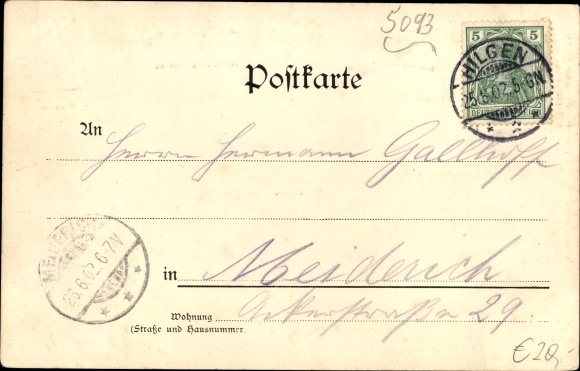 5093
5 5
HILGEN
25.6.02. 5-6N
DEUTSCHES REICH
Postkarte
An
Herrn Hermann Gallhoff
MEIDERICH
26.6.02. 6-7V
in Meiderich
Wohnung Ackerstraße 29.
(Straße und Hausnummer
€20,-